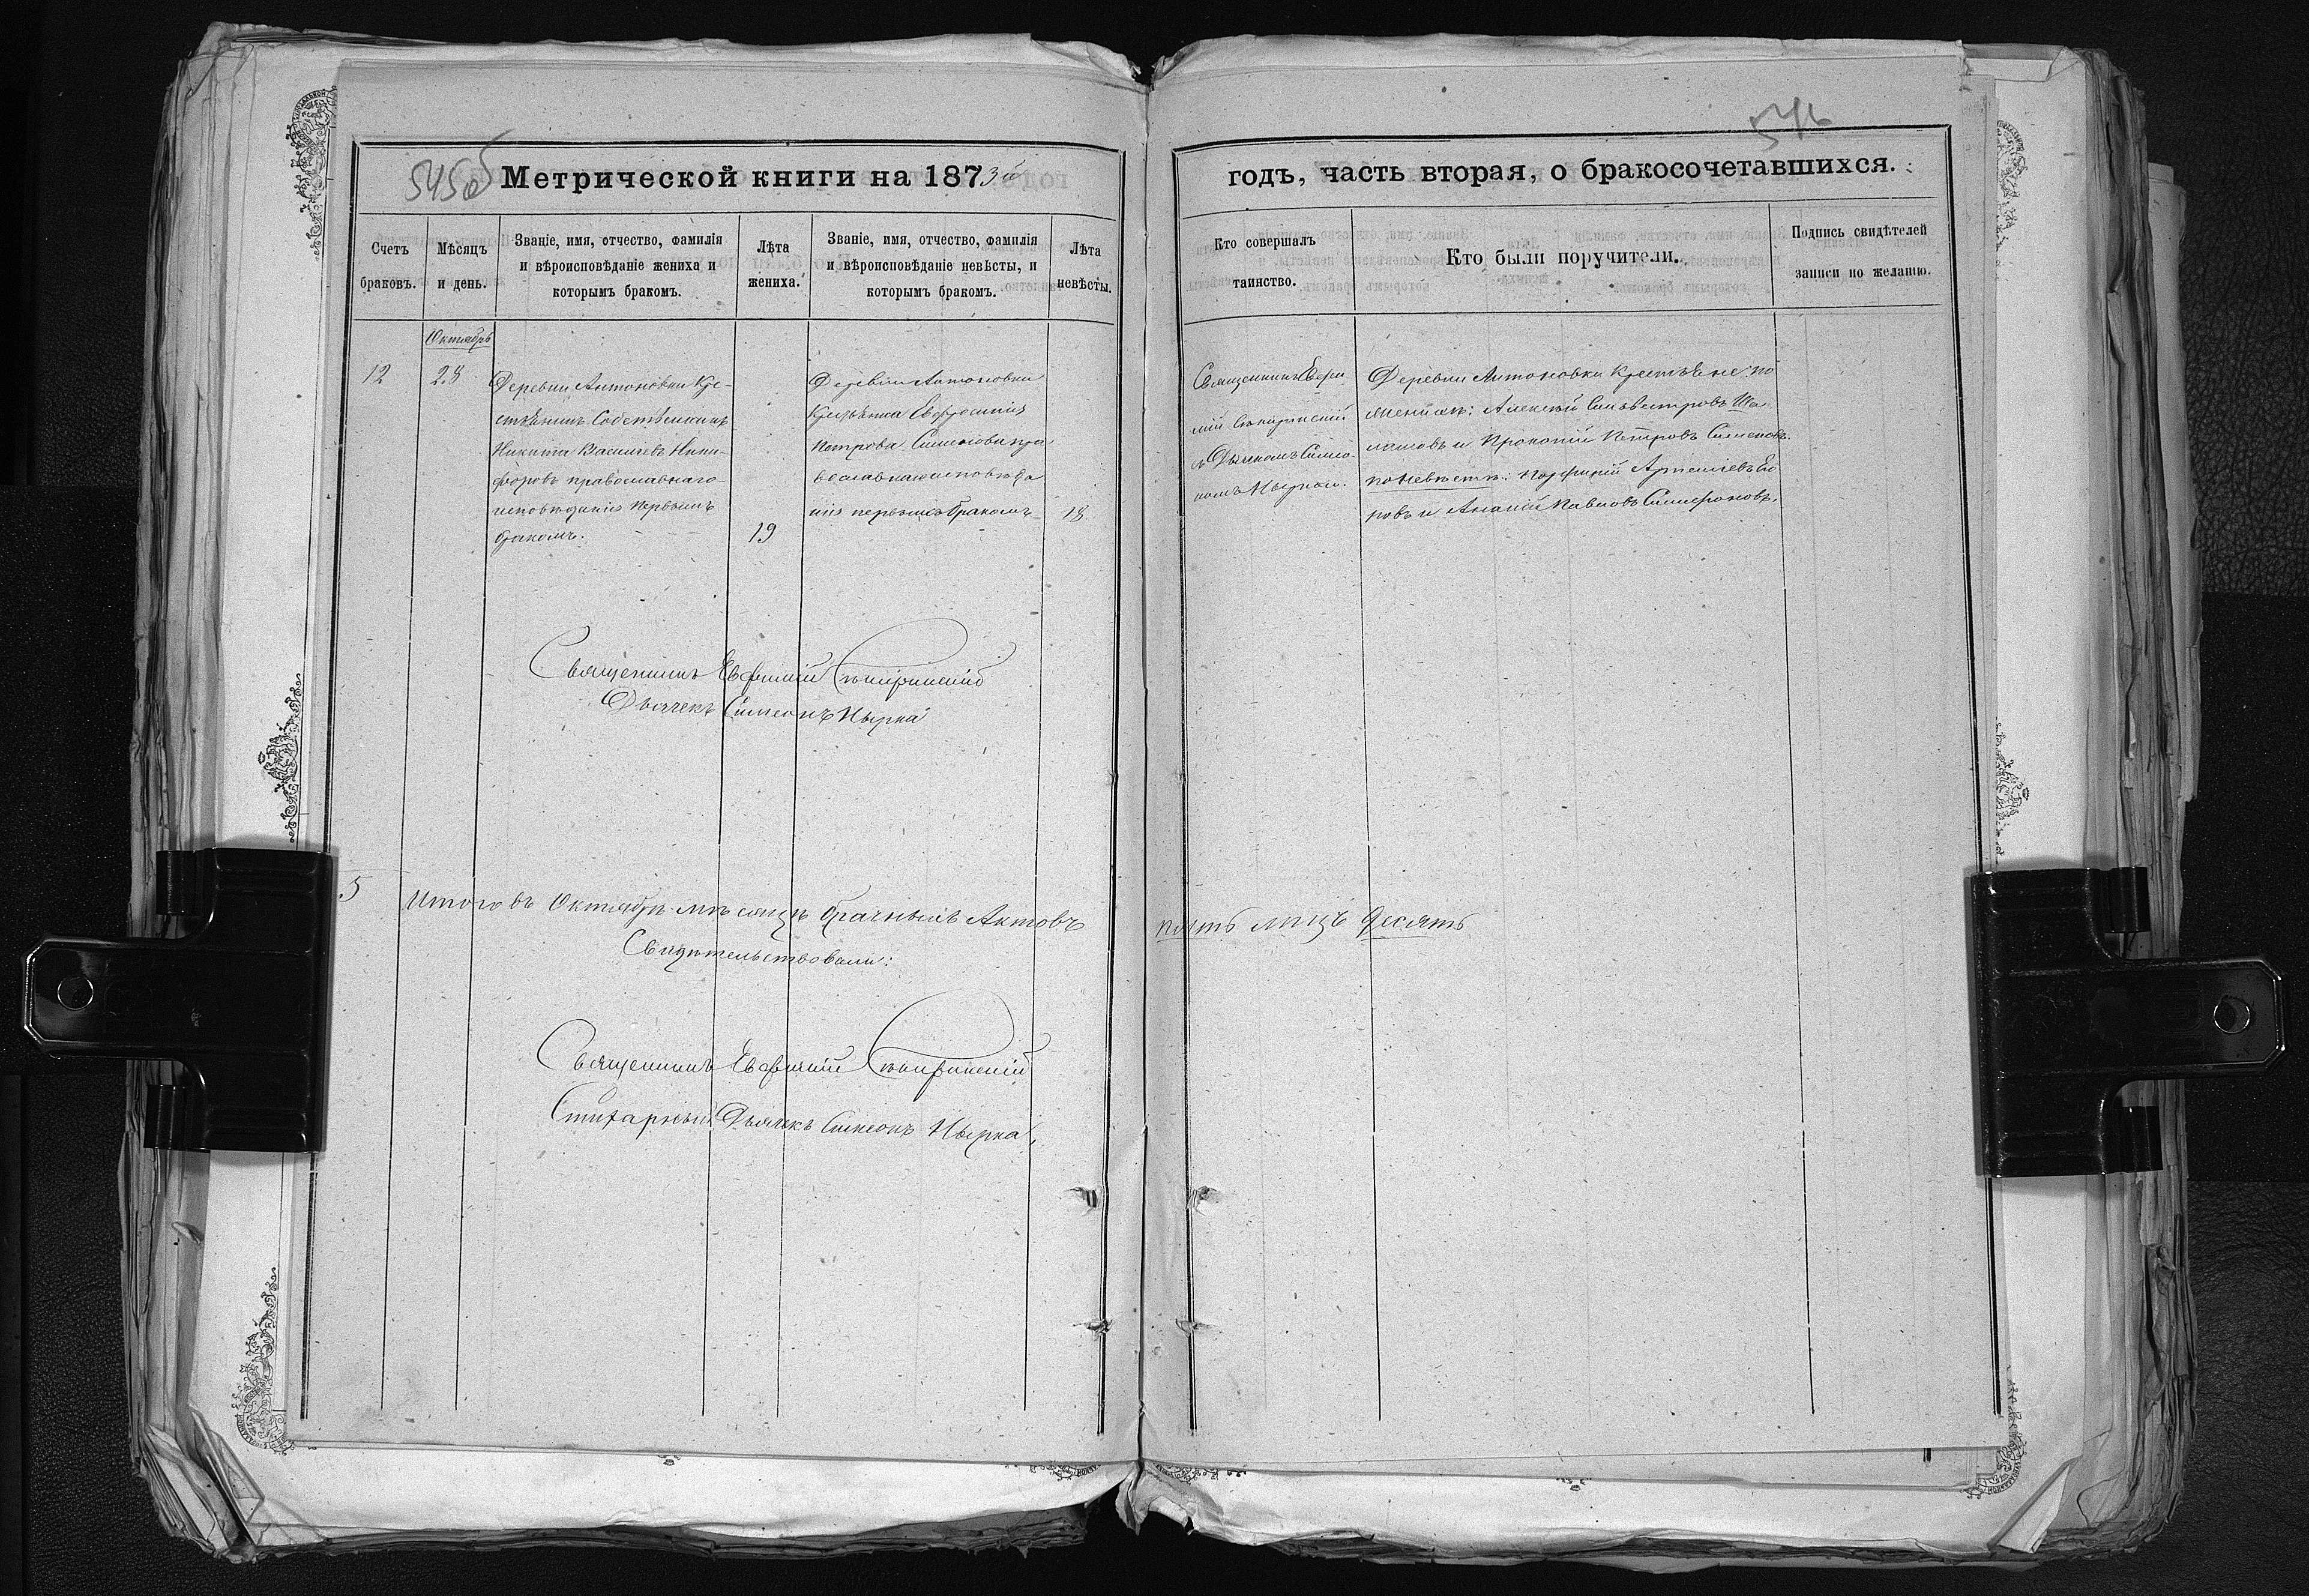 545об
Метрической книги на 1873й
Счетъ браковъ.
Мѣсяцъ и день.
Званіе, имя, отчество, фамилія
и вѣроисповѣданіе жениха и
которымъ бракомъ.
Лѣта жениха.
Званіе, имя, отчество, фамилія
и вѣроисповѣданіе невѣсты, и
которымъ бракомъ.
Лѣта невѣсты.
Октябрь
12
28
Деревни Антоновки кре-
стьянинъ собственникъ
Никита Васильевъ Ники-
форовъ православнаго
исповѣданія первымъ
бракомъ.
19
Деревни Антоновки
Крестьянка Евфросинія
Петрова Симонова пра
вославнаго исповѣда
нія первымъ бракомъ
18
Священникъ Евфимій
Дьячекъ Симеонъ Нырка
5
Итого въ Октябрѣ мѣсяцѣ брачныхъ Актовъ
Свидѣтельствовали:
Священникъ Евфимій
Стихарный Дьячекъ Симеонъ Нырка.
546
годъ, часть вторая, о бракосочетавшихся.
Кто совершалъ
таинство.
Кто были поручители.
Подпись свидѣтелей
записи по желанію.
Священникъ Евфи
мій
съ Дьячкомъ Симео
номъ Ныркою.
Деревни Антоновки Крестьяне по
женихѣ: Алексѣй Сильвестровъ Ша
и Прокопій Петровъ Симоновъ.
по невѣстѣ: Порфирій Артеміевъ
ровъ и Ананій Павловъ
пять лицъ десять